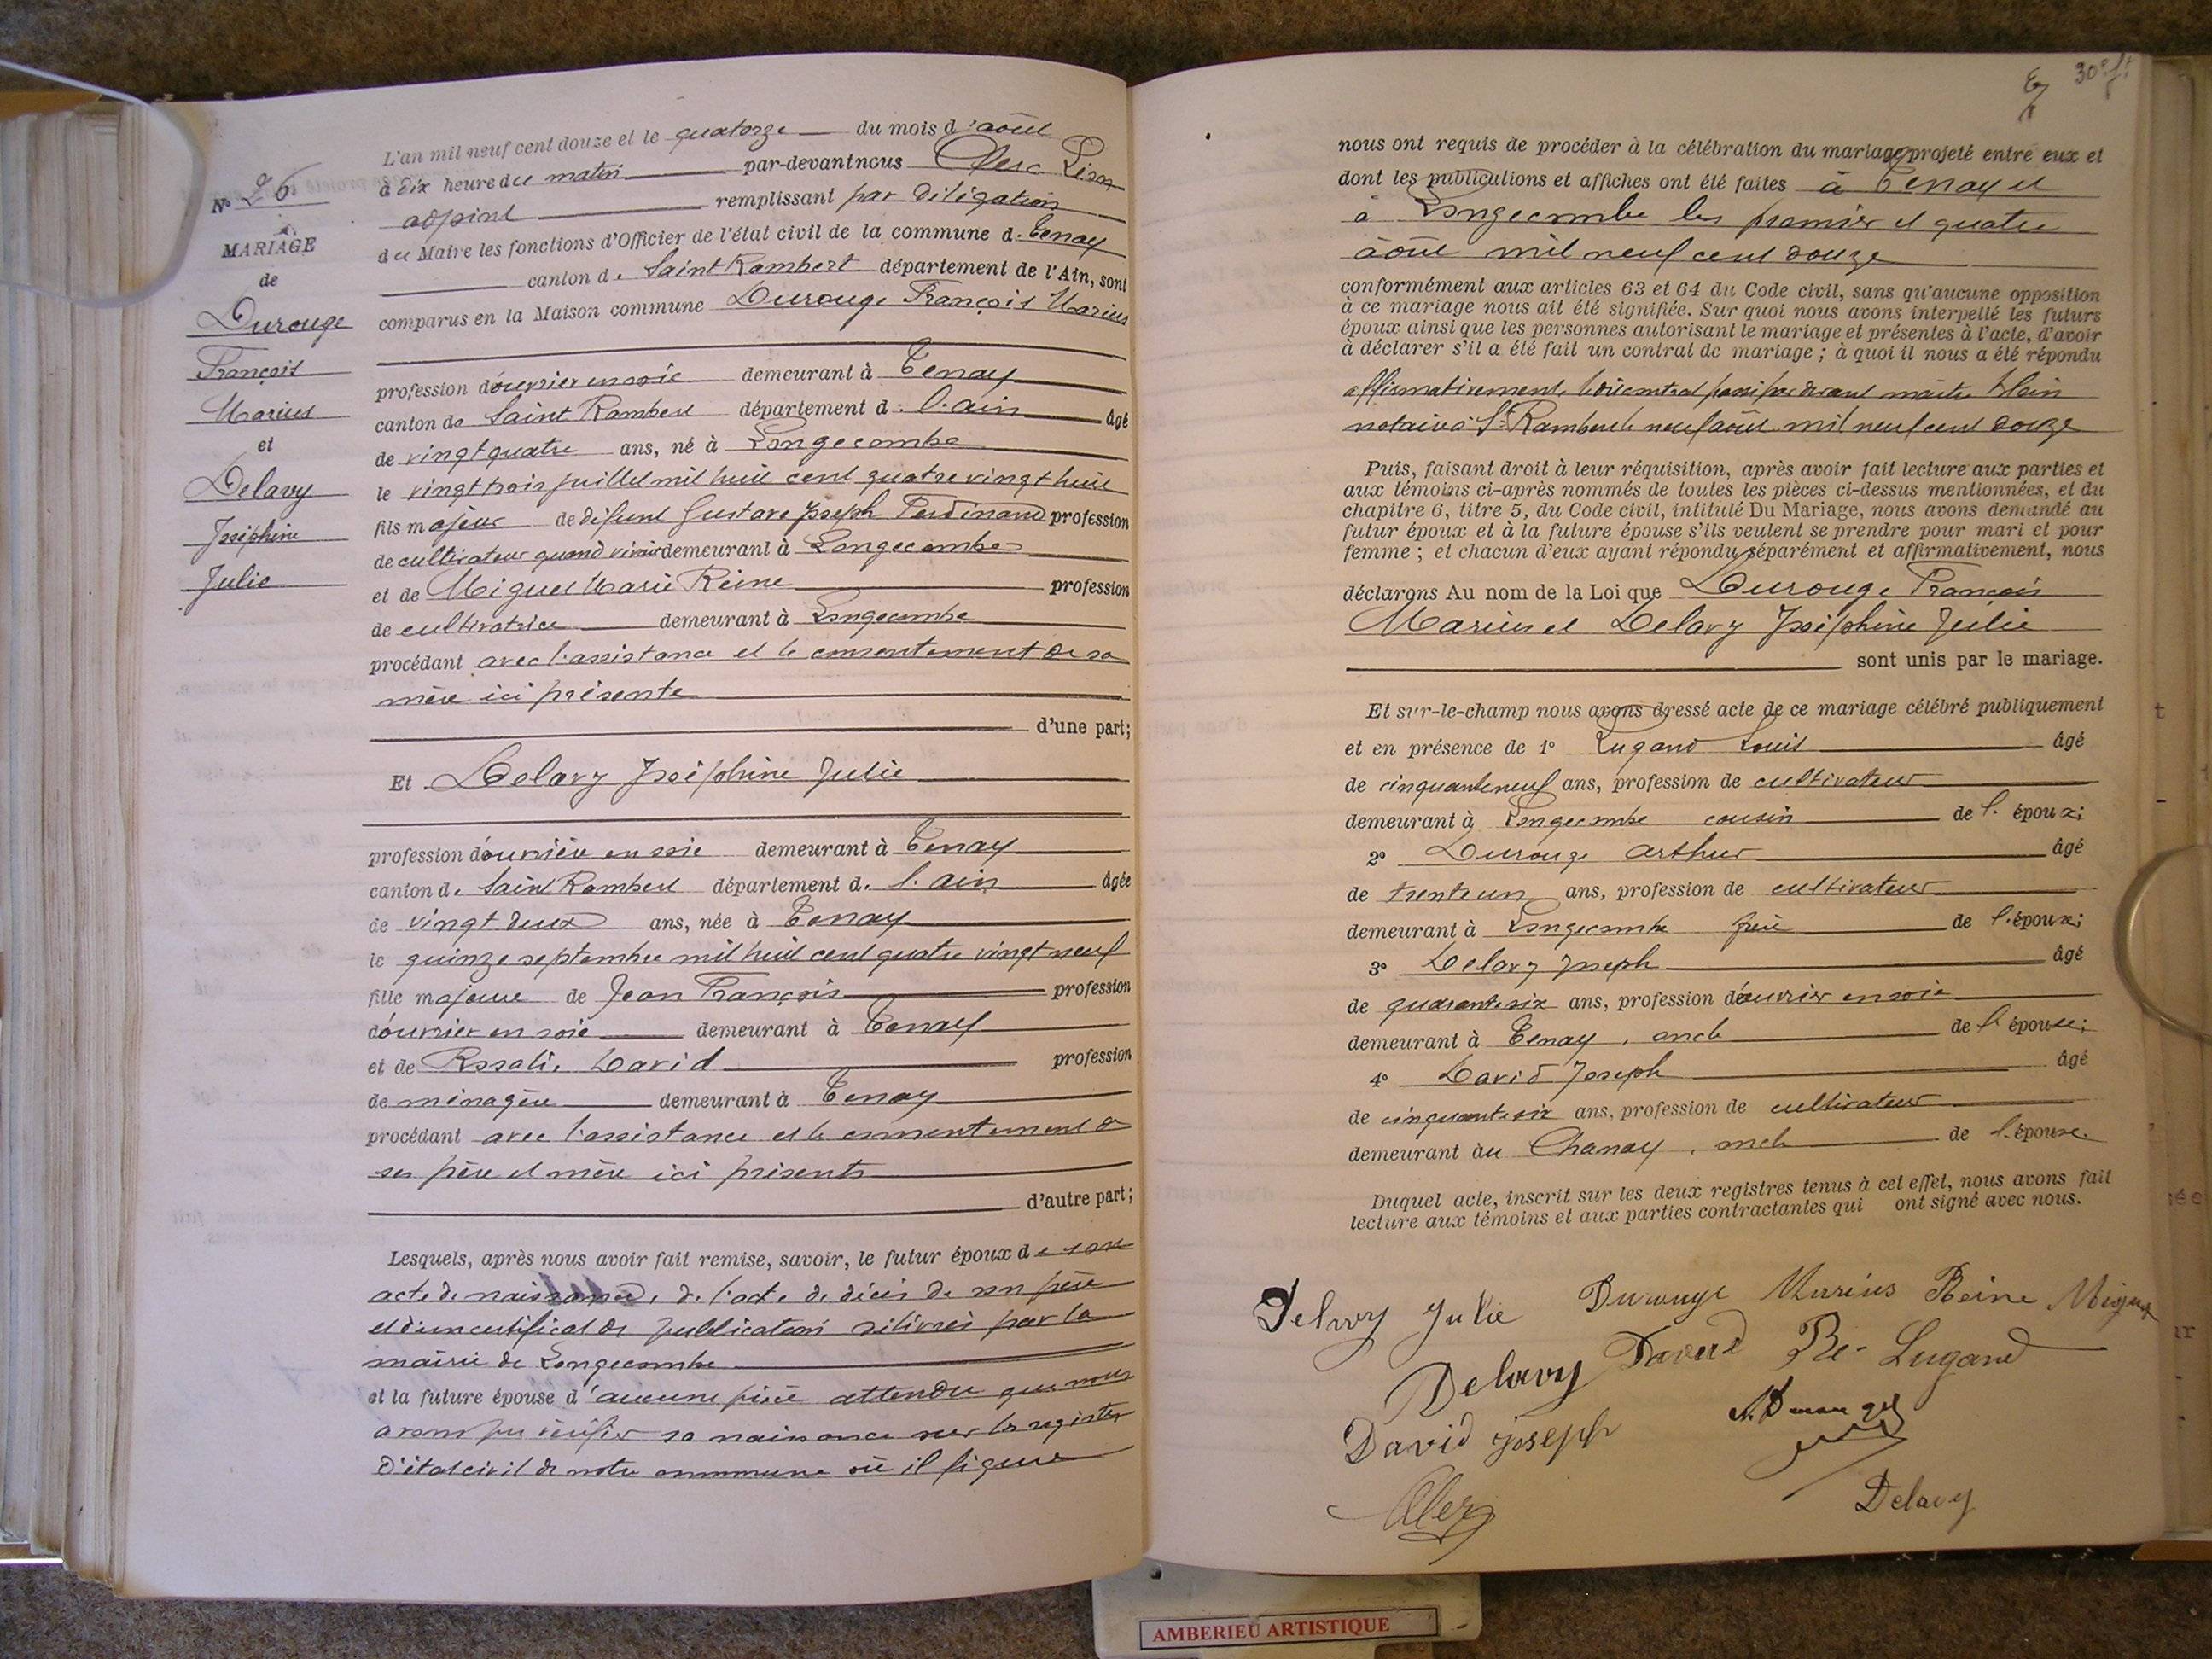 L'an mil neuf cent douze et le quatorze du mois d'août
à dix heure du matin par-devant nous Clerc Léon
adjoint remplissant par délégation
du Maire les fonctions d'Officier de l'état civil de la commune d. Tenay
canton d. Saint Rambert département de l'Ain, sont
comparus en la Maison commune Durouge François Marius
profession d'ouvrier en soie demeurant à Tenay
canton de Saint Rambert département d. l'ain âgé
de vingt quatre ans, né à Longecombe
le vingt trois juillet mil huit cent quatre vingt huit
fils majeur de défunt Gustave Joseph Ferdinand profession
de cultivateur quand vivait demeurant à Longecombe
et de Miguet Marie Reine profession
de cultivatrice demeurant à Longecombe
procédant avec l'assistance et le consentement de sa
mère ici présente
d'une part;
Et Delavy Joséphine Julie
profession d'ouvrière en soie demeurant à Tenay
canton d. Saint Rambert département d. l'ain âgée
de vingt deux ans, née à Tenay
le quinze septembre mil huit cent quatre vingt neuf
fille majeure de Jean François profession
d'ouvrier en soie demeurant à Tenay
et de Rosalie David profession
de ménagère demeurant à Tenay
procédant avec l'assistance et le consentement de
ses père et mère ici présents
d'autre part;
Lesquels, après nous avoir fait remise, savoir, le futur époux de son
acte de naissance, de l'acte de décès de son père
et d'un certificat de publications délivrés par la
mairie de Longecombe
et la future épouse d'aucune pièce attendu que nous
avons pu vérifier sa naissance sur les registres
d'état civil de notre commune où il figure
N° 26
MARIAGE
de
Durouge
François
Marius
et
Delavy
Joséphine
Julie
30e ft
nous ont requis de procéder à la célébration du mariage projeté entre eux et
dont les publications et affiches ont été faites à Tenay et
à Longecombe les premier et quatre
août mil neuf cent douze
conformément aux articles 63 et 64 du Code civil, sans qu'aucune opposition
à ce mariage nous ait été signifiée. Sur quoi nous avons interpellé les futurs
époux ainsi que les personnes autorisant le mariage et présentes à l'acte, d'avoir
à déclarer s'il a été fait un contrat de mariage ; à quoi il nous a été répondu
affirmativement, contrat passé par devant maître
notaire à St Rambert le neuf août mil neuf cent douze
Puis, faisant droit à leur réquisition, après avoir fait lecture aux parties et
aux témoins ci-après nommés de toutes les pièces ci-dessus mentionnées, et du
chapitre 6, titre 5, du Code civil, intitulé Du Mariage, nous avons demandé au
futur époux et à la future épouse s'ils veulent se prendre pour mari et pour
femme ; et chacun d'eux ayant répondu séparément et affirmativement, nous
déclarons Au nom de la Loi que Durouge François
Marius et Delavy Joséphine Julie
sont unis par le mariage.
Et sur-le-champ nous avons dressé acte de ce mariage célébré publiquement
et en présence de 1° Lugand Louis âgé
de cinquante neuf ans, profession de cultivateur
demeurant à Longecombe cousin de l. époux;
2° Durouge Arthur âgé
de trente un ans, profession de cultivateur
demeurant à Longecombe frère de l'époux;
3° Delavy Joseph âgé
de quarante six ans, profession d'ouvrier en soie
demeurant à Tenay, oncle de l'épouse;
4° David Joseph âgé
de cinquante six ans, profession de cultivateur
demeurant au Chanay, oncle de l'épouse.
Duquel acte, inscrit sur les deux registres tenus à cet effet, nous avons fait
lecture aux témoins et aux parties contractantes qui ont signé avec nous.
Delavy Julie Durouge Marius Reine Miguet
Delavy David Rie Lugand
David joseph
Clerc Delavy
AMBERIEU ARTISTIQUE